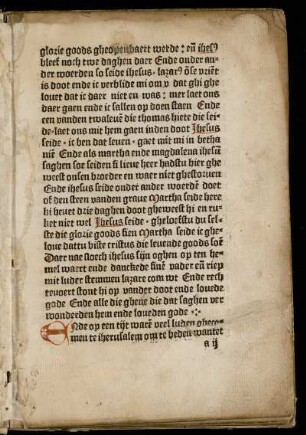 glorie goods gheopenbaert werde: eñ ihesꝰ
bleef noch twe daghen daer Ende onder an
der woerden so seide ihesus. lazarꝰ ōse vriēt
is doot ende ic verblide mi om v dat ghi ghe
louet dat ic daer niet en was: mer laet ons
daer gaen ende ic sallen op doen staen Ende
een vanden twaleuē die thomas hiete die sei
de. laet ons mit hem gaen inden doot Jhesus
seide. ic ben dat leuen. gaet mit mi in betha
niē Ende als martha ende magdalena ihesū
saghen soe seiden si lieue heer haddstu hier ghe
weest onsen broeder en waer niet ghestoruen
Ende ihesus seide onder ander woerdē doet
of den steen vanden graue Martha seide here
hi heuet drie daghen doot gheweest hi en ru
ket niet wel Jhesus seide. gheloefstu du sel
ste die glorie goods sien Martha seide ic ghe
loue dattu biste cristus die leuende goods sōe
Daer nae sloech ihesus sijn oghen op ten he
mel waert ende danckede sinē vader eñ riep
mit luder stemmen lazare com wt Ende rech
teuoert stont hi op vander doot ende louede
gode Ende alle die ghene die dat saghen ver
wonderden hem ende loueden gode
Ende op een tijt warē veel luden ghecō
men te iherusalem om te beden wantet
a ij